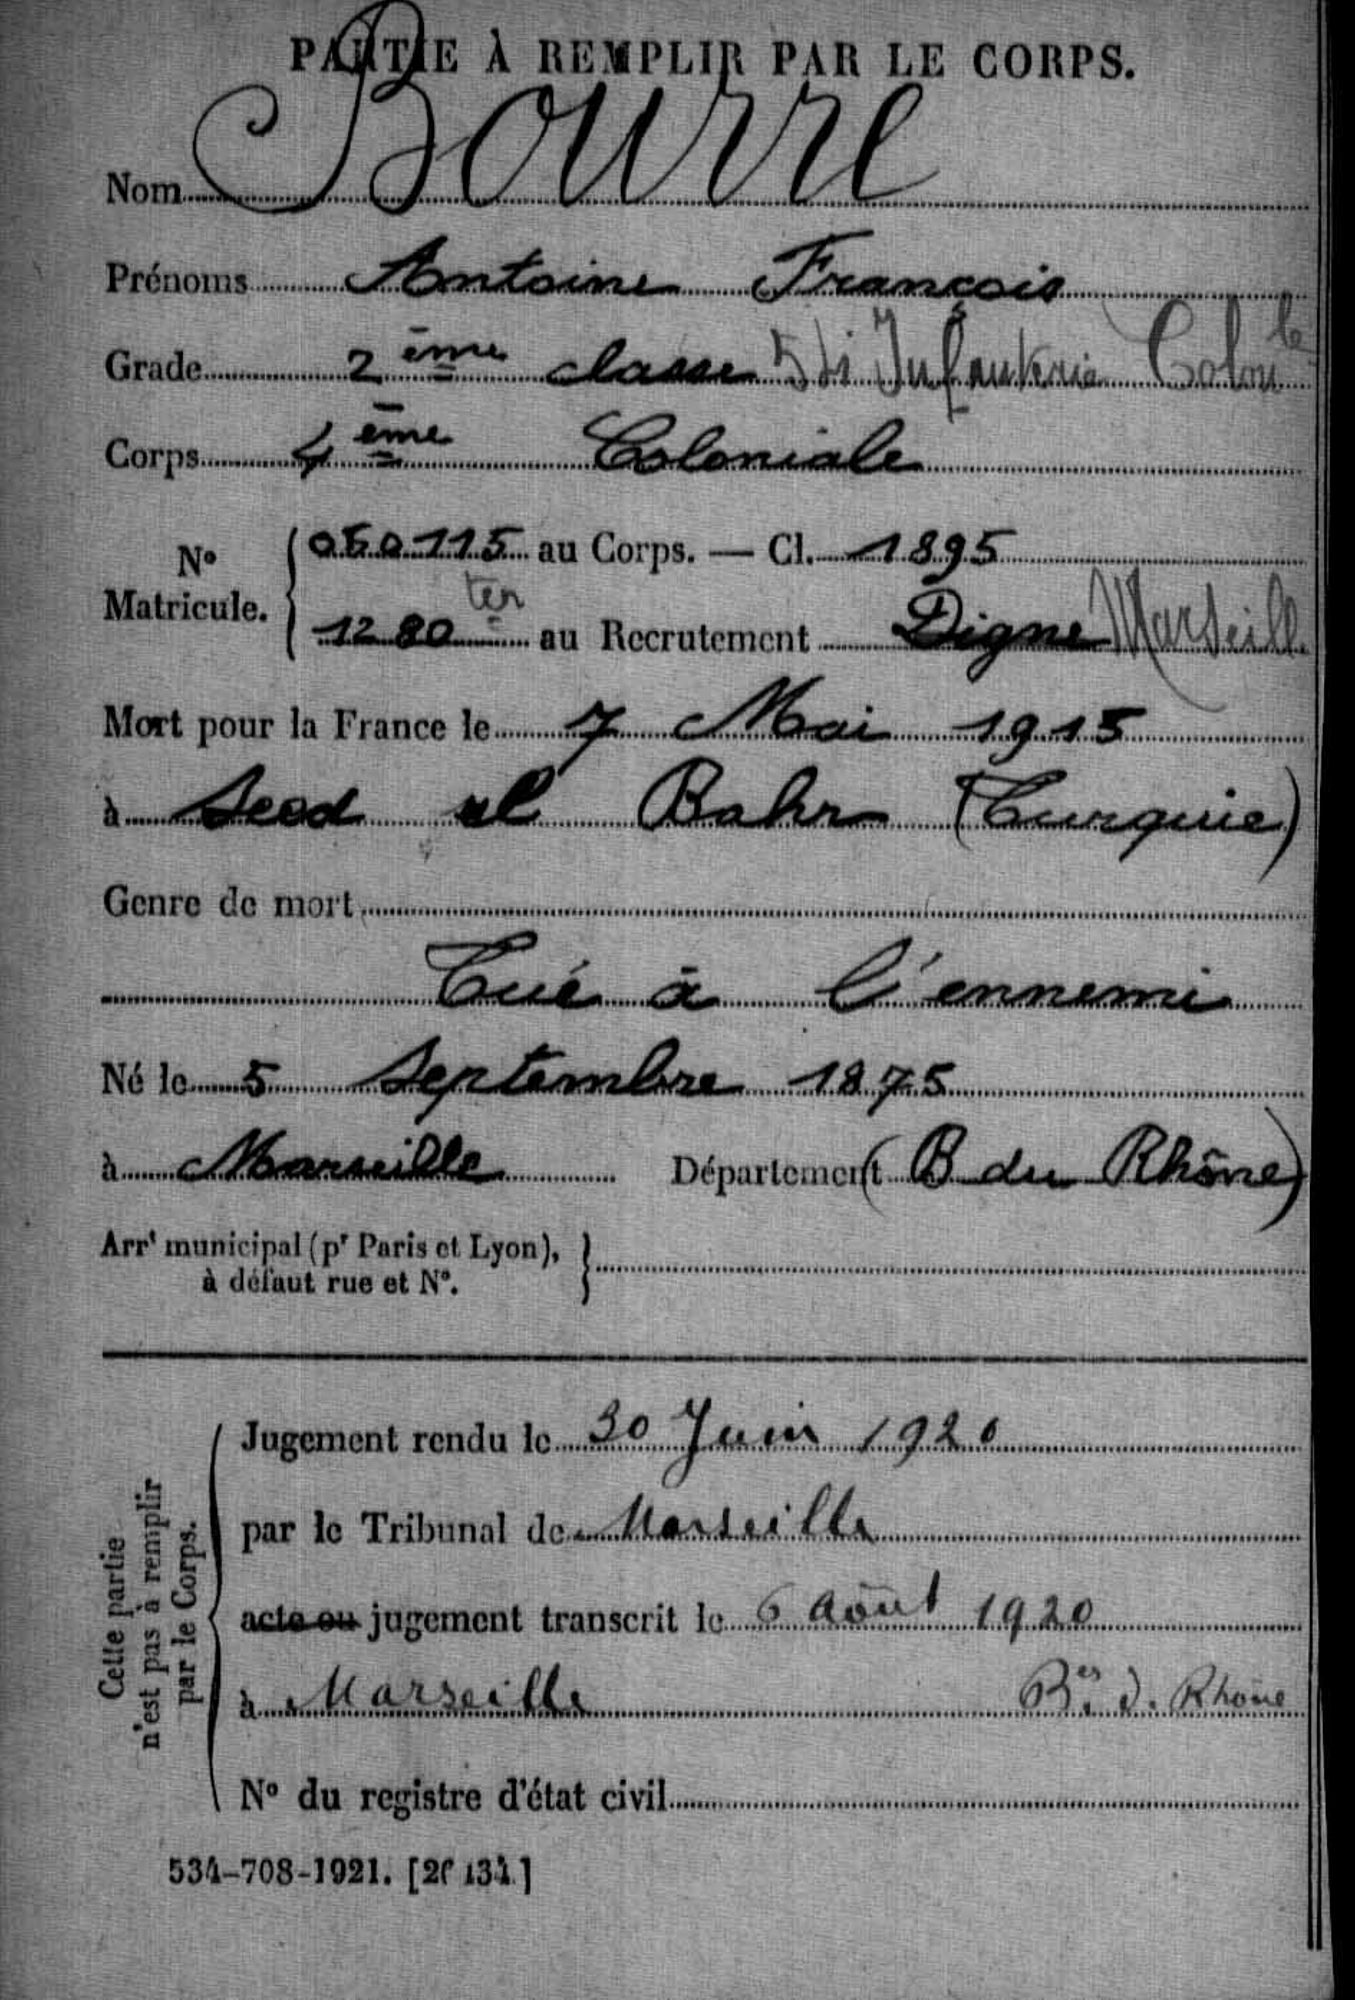 PARTIE À REMPLIR PAR LE CORPS.
Nom Bourre
Prénoms Antoine François
Grade 2ème classe Infanterie Colonle
Corps 4ème Coloniale
No Matricule. 050115 au Corps. — Cl. 1895
1280 ter au Recrutement Digne Marseille
Mort pour la France le 7 Mai 1915
à Seed el Bahr (Turquie)
Genre de mort
Tué à l'ennemi
Né le 5 Septembre 1875
à Marseille Département (B du Rhône)
Arrt municipal (pr Paris et Lyon),
à défaut rue et No.
Cette partie
n'est pas à remplir
par le Corps.
Jugement rendu le 30 Juin 1920
par le Tribunal de Marseille
acte ou jugement transcrit le 6 Août 1920
à Marseille Bes d. Rhône
No du registre d'état civil
534-708-1921. [26134.]